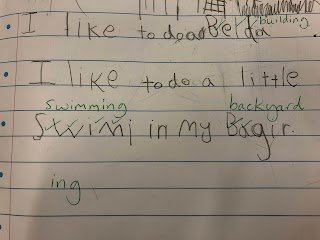 building
I like to do
I like to do a little
swimming backyard
Swimj in my Bagir.
ing